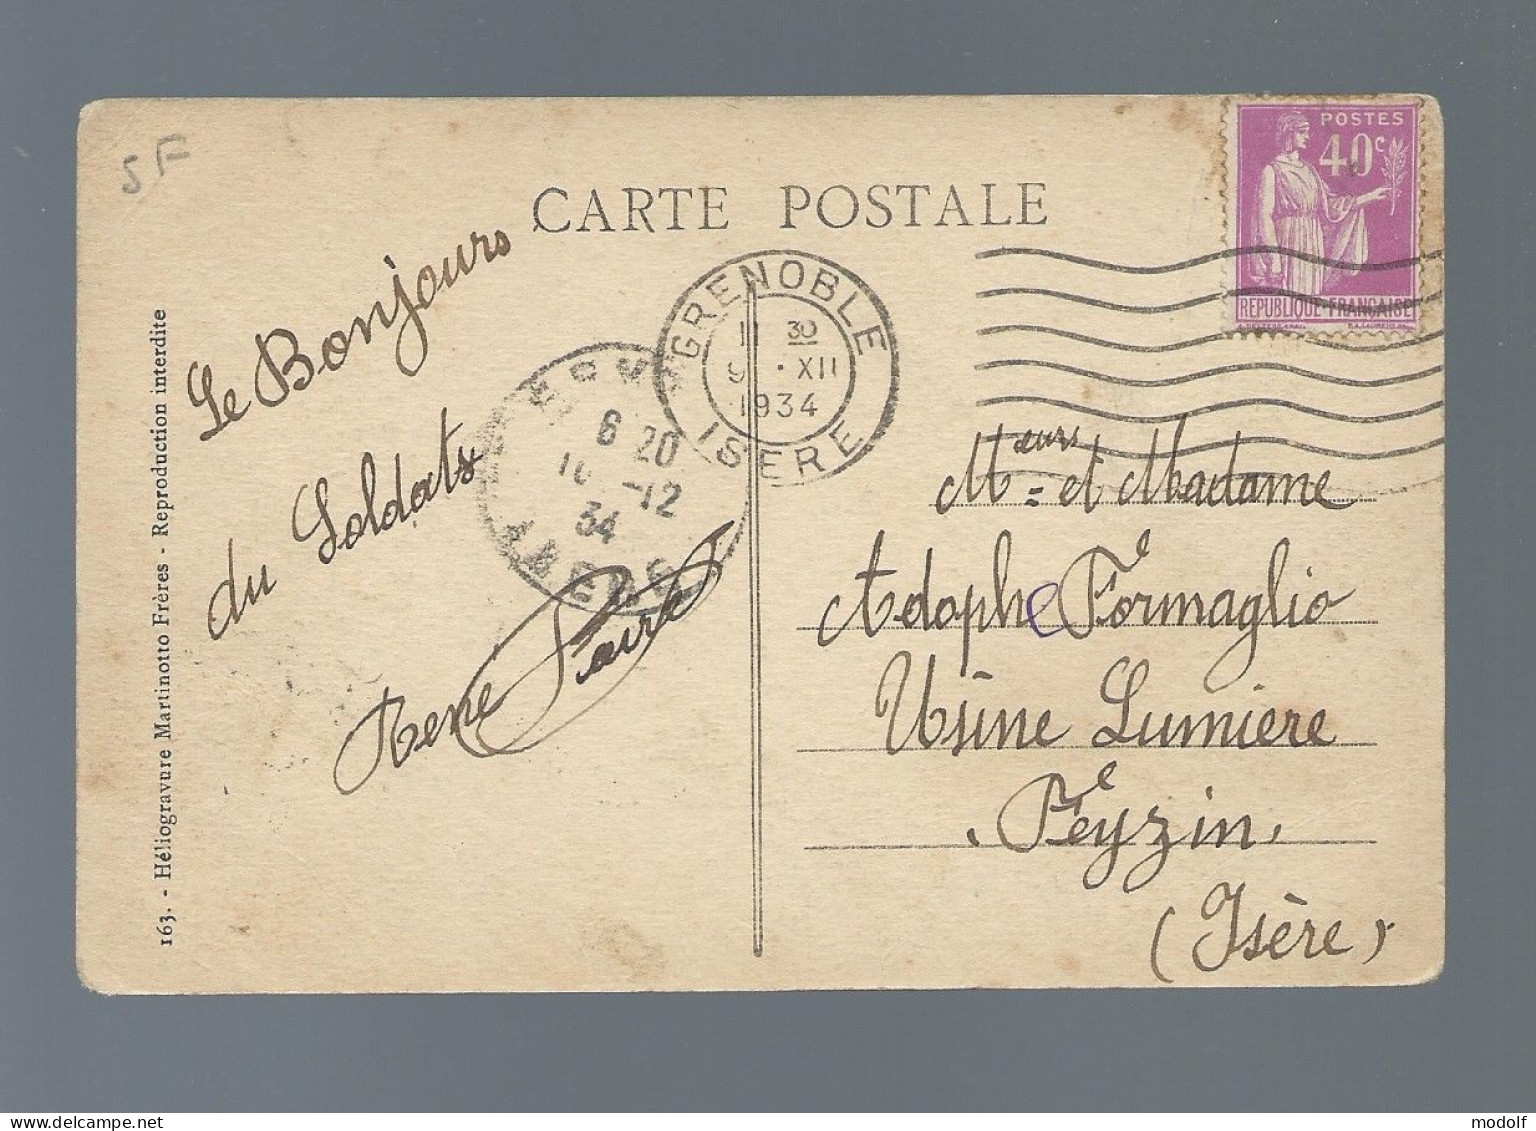 5F
CARTE POSTALE
POSTES
40c
REPUBLIQUE FRANÇAISE
GRENOBLE
30
9 · XII
1934
ISERE
6 20
10 -12
34
Le Bonjours
du Soldats
Rene Favre
Meurs = et Madame
Adophe Formaglio
Usine Lumiere
Feyzin
(Isère)
163. - Héliogravure Martinotto Frères - Reproduction interdite
modolf